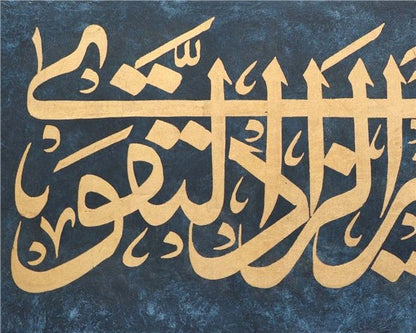 ير الزاد التّقوى